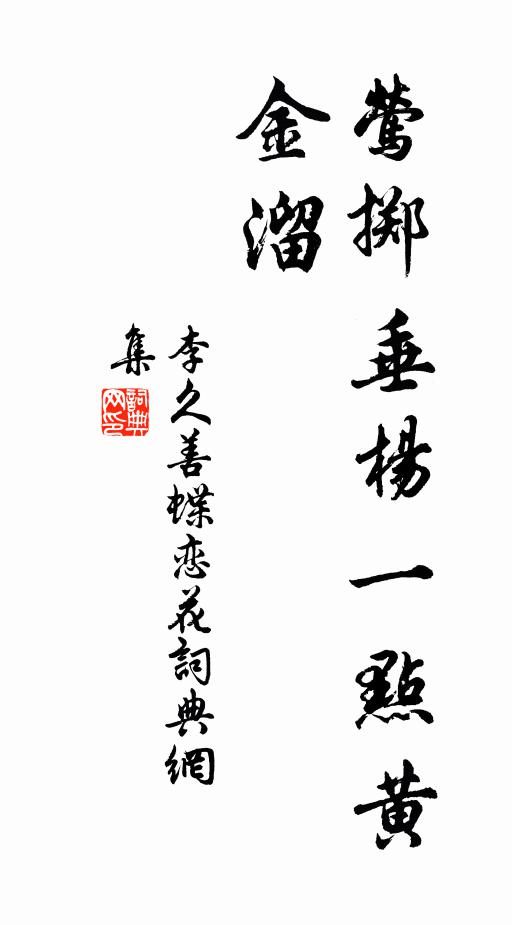 鶯掷垂楊一點黄
金溜
李久善蝶恋花詞典網
集
詞典
网印